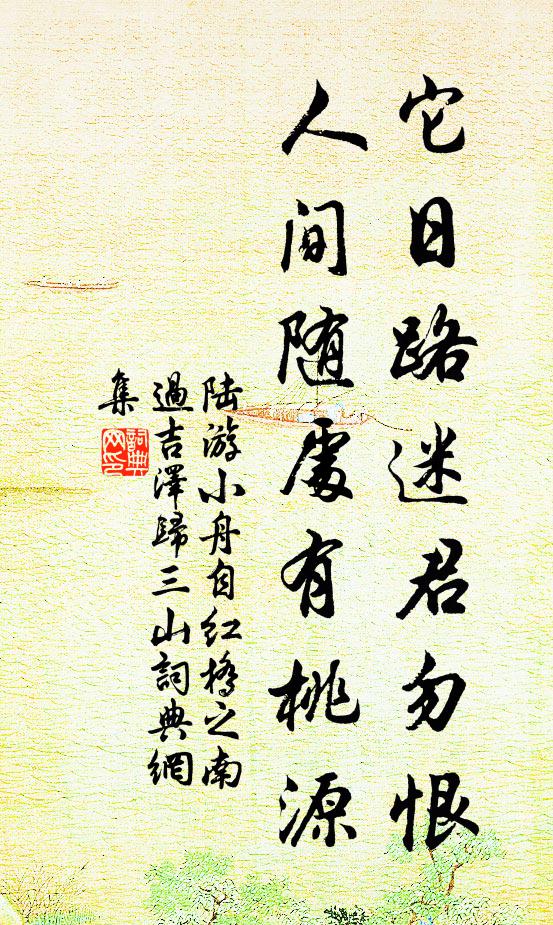 它日路迷君勿恨
人间随處有桃源
陆游小舟自红橋之南
過吉澤歸三山詞典網
集
詞典網印